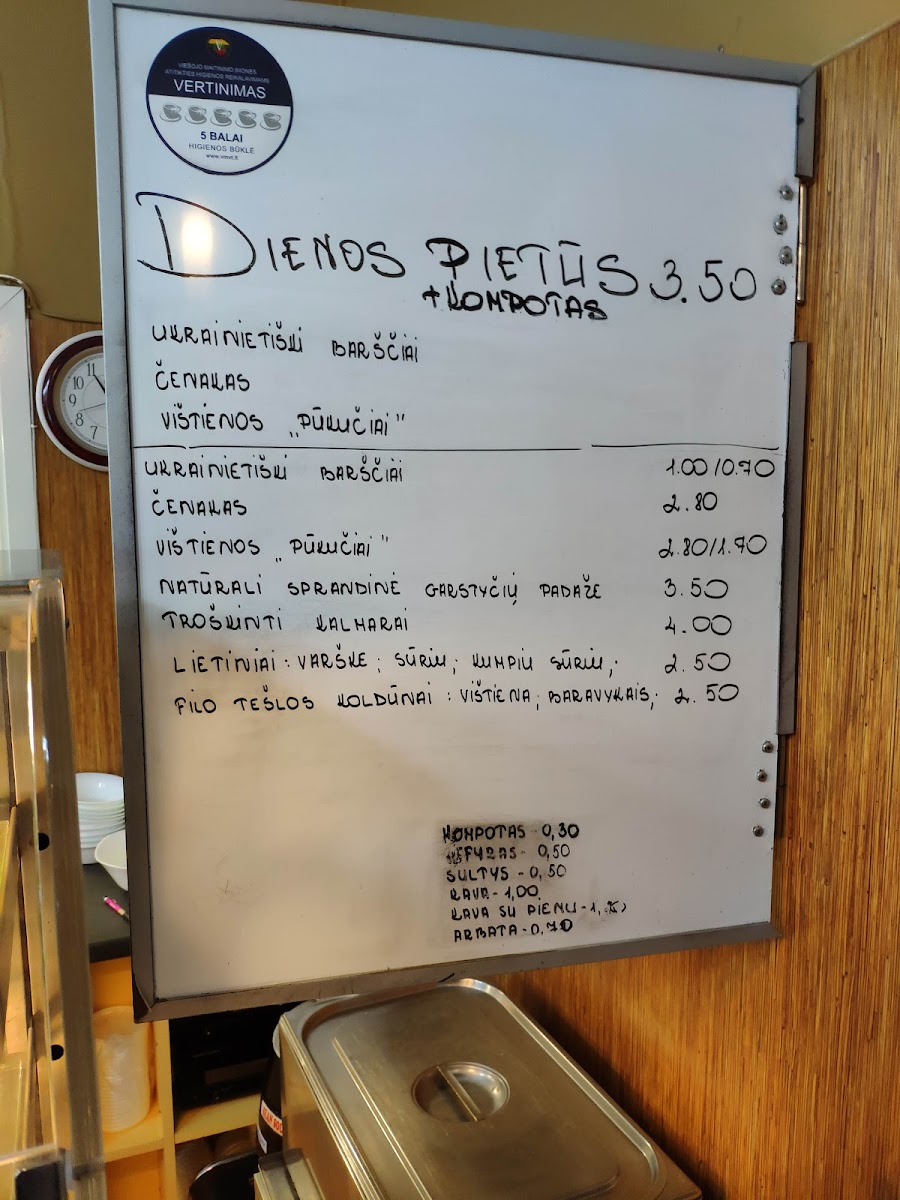 VIEŠOJO MAITINIMO ĮMONĖS
ATITIKTIES HIGIENOS REIKALAVIMAMS
VERTINIMAS
5 BALAI
HIGIENOS BŪKLĖ
www.vmvt.lt
DIENOS PIETŪS 3.50
+KOMPOTAS
UKRAINIETIŠKI BARŠČIAI
ČENAKAS
VIŠTIENOS „PŪKUČIAI”
UKRAINIETIŠKI BARŠČIAI 1.00/0.70
ČENAKAS 2.80
VIŠTIENOS „PŪKUČIAI” 2.80/1.70
NATŪRALI SPRANDINĖ GARSTYČIŲ PADAŽE 3.50
TROŠKINTI KALMARAI 4.00
LIETINIAI: VARŠKE; SŪRIU; KUMPIU SŪRIU; 2.50
FILO TEŠLOS KOLDŪNAI: VIŠTIENA; BARAVYKAIS; 2.50
KOMPOTAS - 0,30
KEFYRAS - 0,50
SULTYS - 0,50
KAVA - 1,00
KAVA SU PIENU -
ARBATA - 0,70
11
10
9
8
7